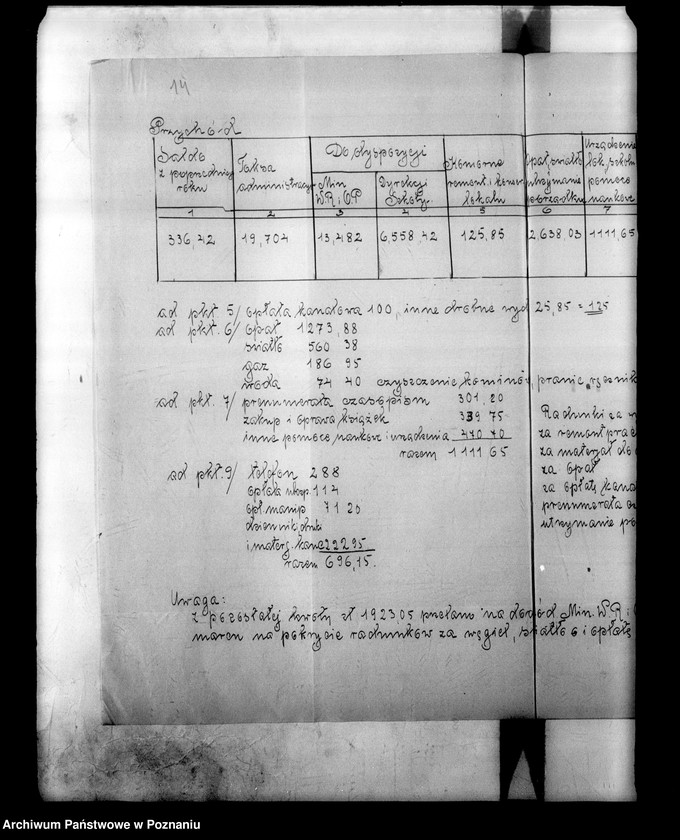 14
Przychód
Saldo z poprzedniego roku
Taksa administracyj
Do dyspozycji
Min W.R i O.P
Dyrekcji Szkoły
Komorne remont. i konser lokalu
opał, światło utrzymanie porządku
Urządzenie lok. szkoln pomoce naukowe
1 2 3 4 5 6 7
336,42 19,704 13,482 6,558,42 125,85 2,638,03 1111,65
ad pkt 5/ opłata kanałowa 100, inne drobne wyd 25,85 = 125
ad pkt. 6/ opał 1273,88
światło 560 38
gaz 186 95
woda 74 40 czyszczenie kominów, pranie ręcznik
ad pkt. 7/ prenumerata czasopism 301.20
zakup i oprawa książek 339 75
inne pomoce naukow i urządzenia 470 70
razem 1111 65
Rachunki za
za remont
za materjał do
za opał
za opłatę kana
prenumerata
utrzymanie
ad pkt. 9/ telefon 288
opłata ubezp. 114
opł. manip 71 20
dzienniki druki
i materj. kanc 222 95
razem 696,15.
Uwaga:
z pozostałej kwoty zł 1923.05 przelano na dochód Min. W.R i
marca na pokrycie rachunków za węgiel, światło i opłatę
Archiwum Państwowe w Poznaniu